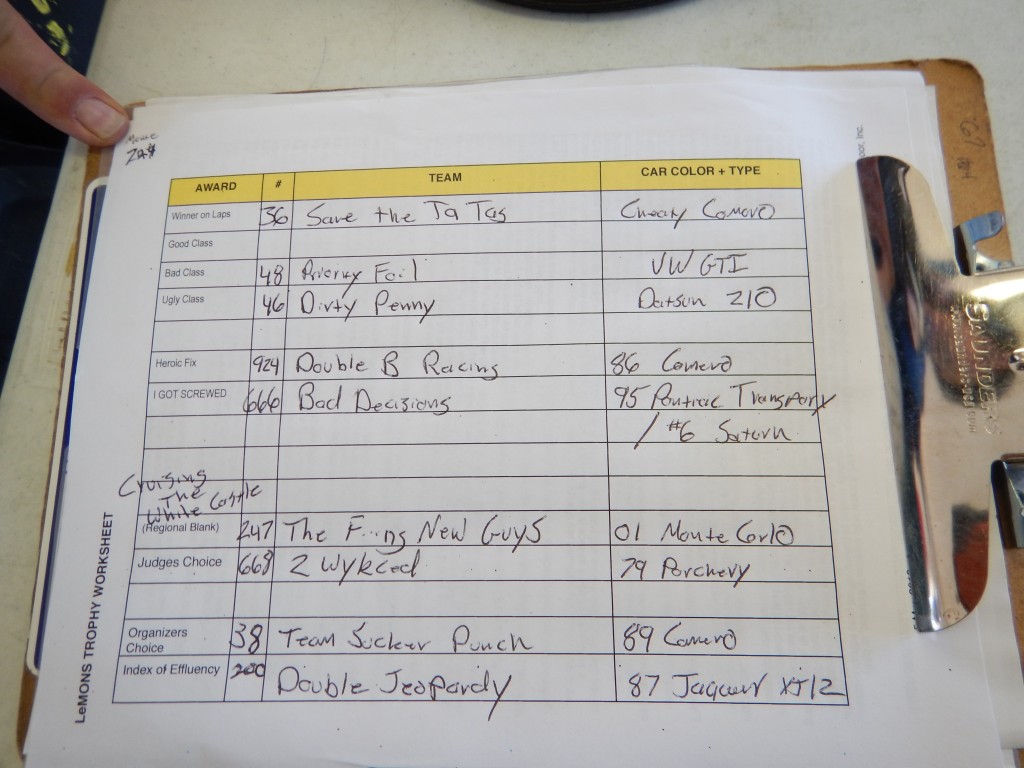 ZA$
AWARD # TEAM CAR COLOR + TYPE
Winner on Laps 36 Save the Ta Tas Cheaty Camaro
Good Class
Bad Class 48 Fail VW GTI
Ugly Class 46 Dirty Penny Datsun 210
Heroic Fix 924 Double B Racing 86 Camero
I GOT SCREWED 666 Bad Decisions 95 Pontiac Transport
/ #6 Saturn
Cruising
The
White Castle
(Regional Blank) 247 The F--ng New Guys 01 Monte Carlo
Judges Choice 668 2 Wykced 79 Porchery
Organizers
Choice 38 Team Sucker Punch 89 Camero
Index of Effluency 200 Double Jeopardy 87 Jaguar XJ12
LeMONS TROPHY WORKSHEET
SAUNDERS